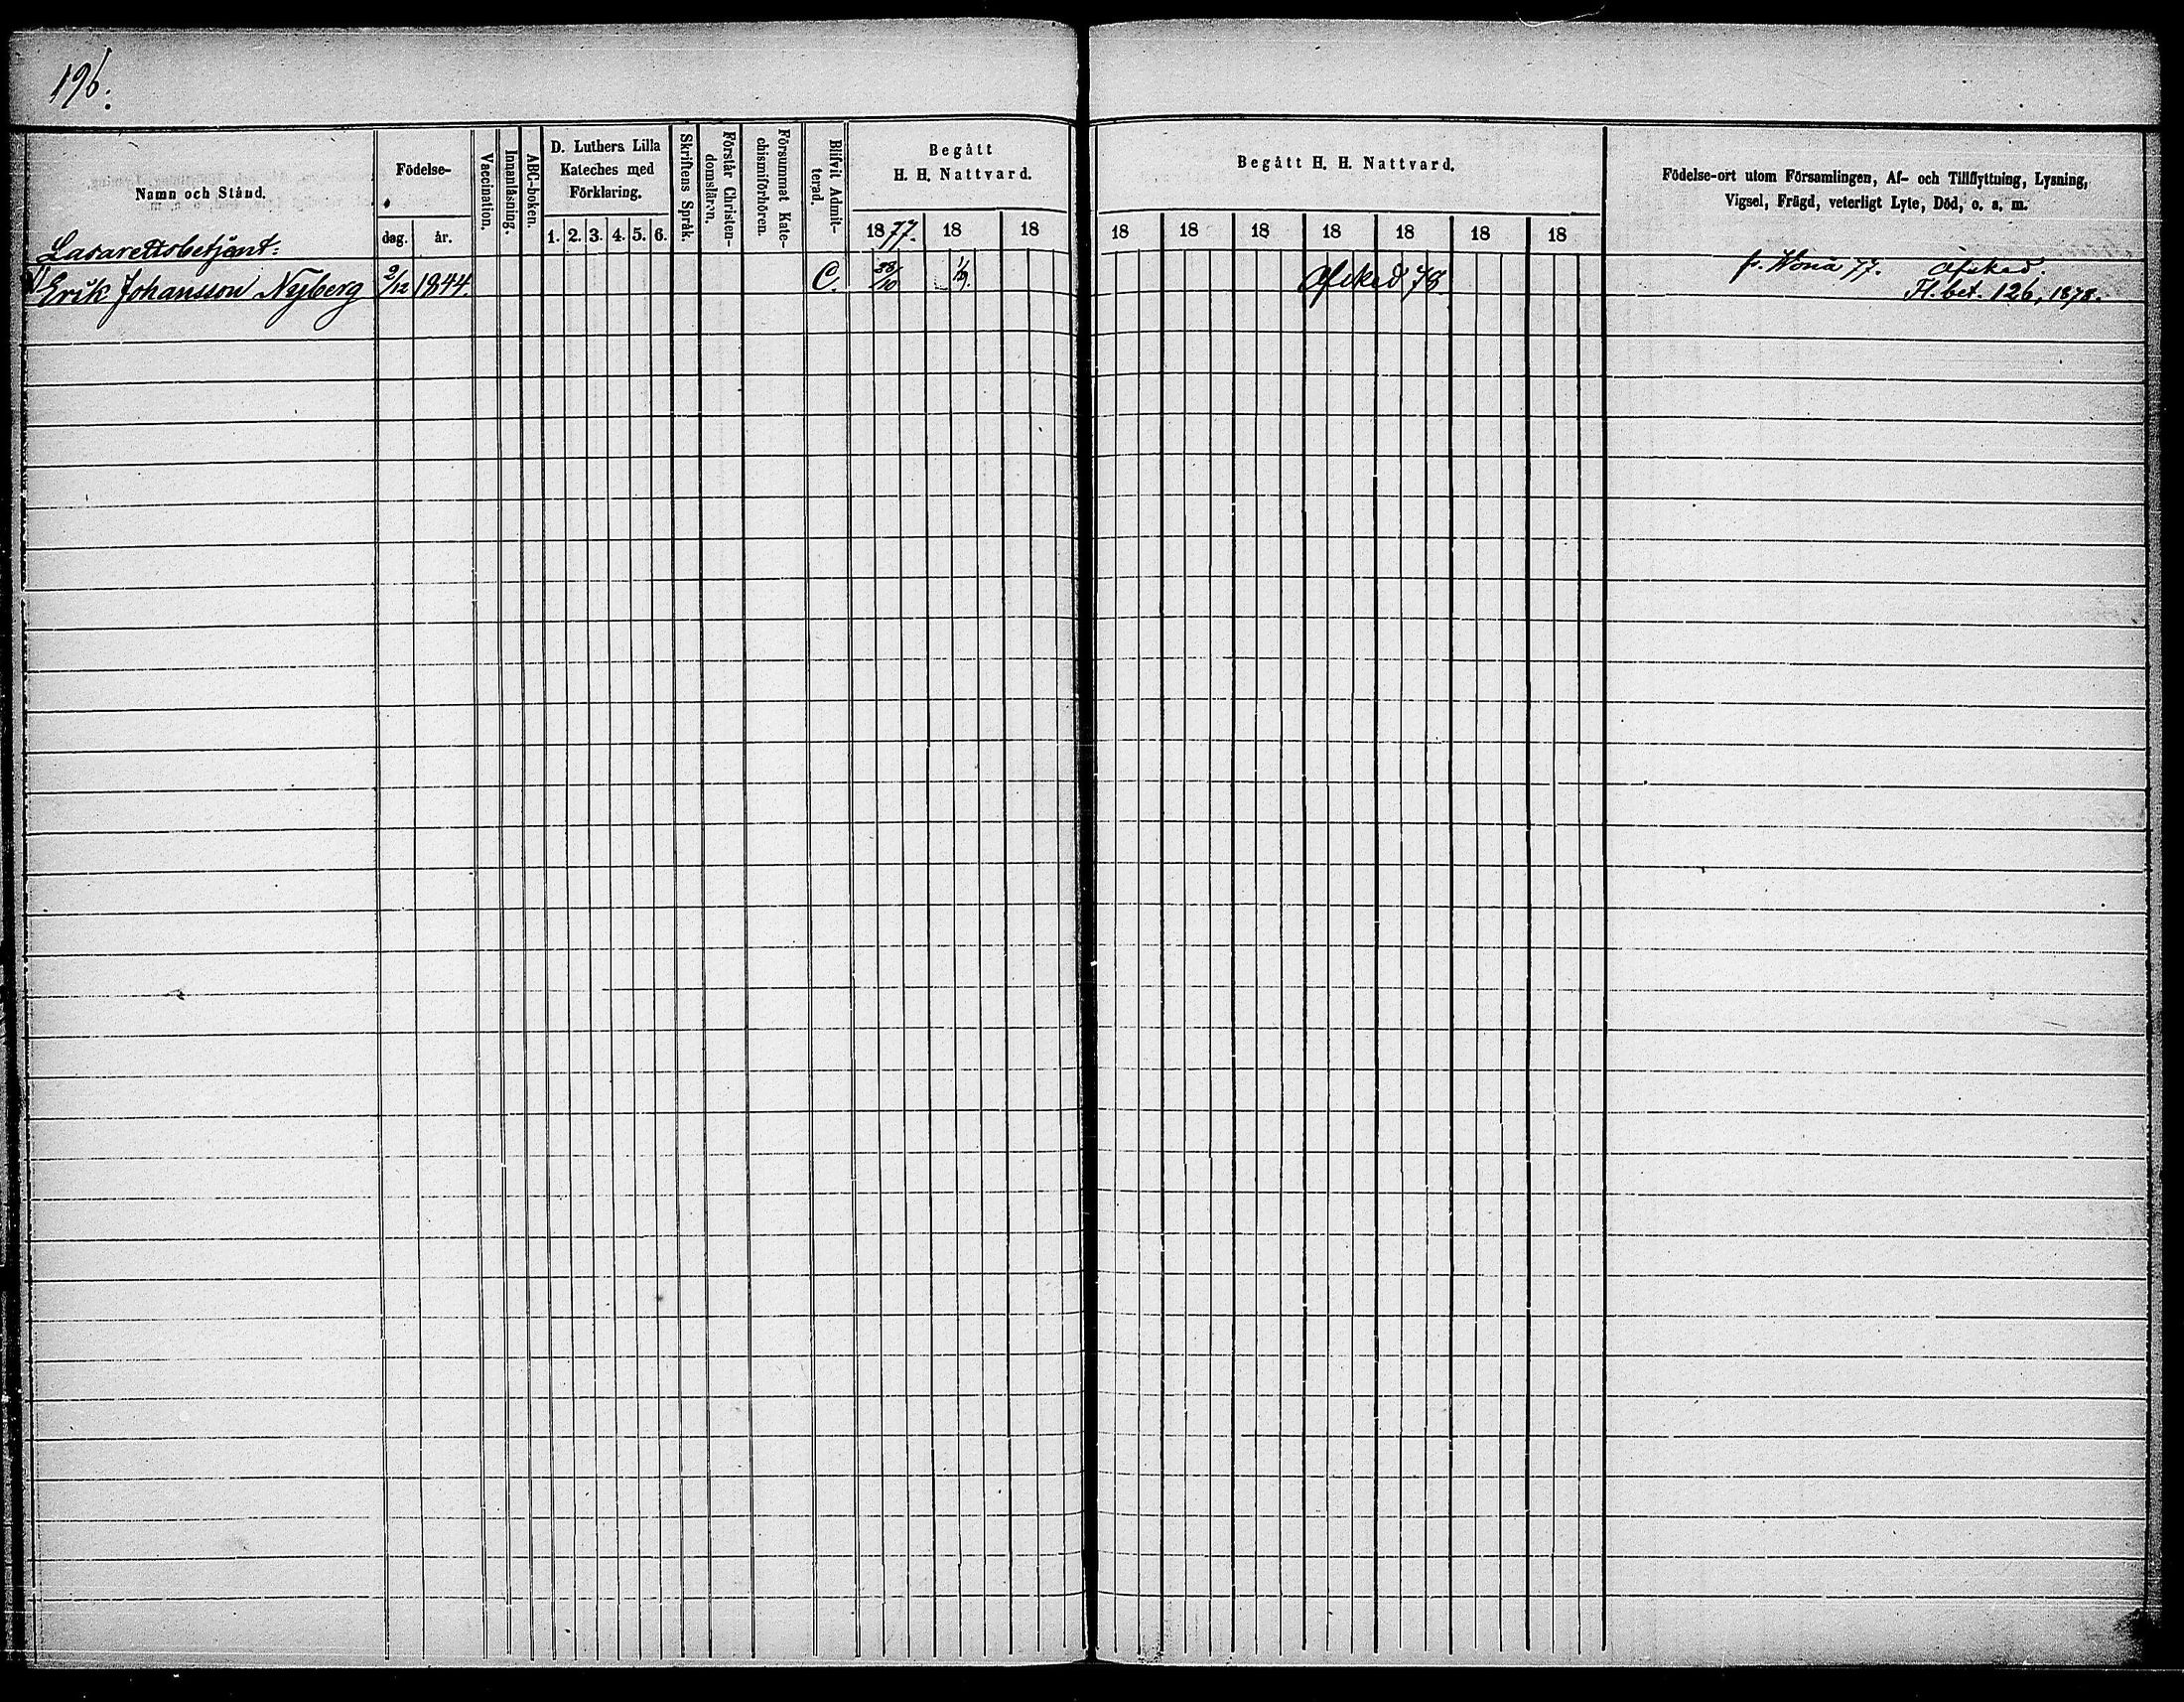 196.
Namn och Stånd.
Födelse-
dag. år.
Vaccination.
Innanläsning.
ABC-boken.
D. Luthers Lilla
Kateches med
Förklaring.
1. 2. 3. 4. 5. 6.
Skriftens Språk.
Förstår Christen-
domsläran.
Försummat Kate-
chismiförhören.
Blifvit Admit-
terad.
Begått
H. H. Nattvard.
1877. 18 18
Begått H. H. Nattvard.
18 18 18 18 18 18 18
Födelse-ort utom Församlingen, Af- och Tillflyttning, Lysning,
Vigsel, Frägd, veterligt Lyte, Död, o. s. m.
Lasarettsbetjent:
Erik Johansson Nyberg 2/12 1844. C. 28/10 1/9. Afsked 78. fr. Wonå 77. Afsked.
Fl. bet. 126, 1878.